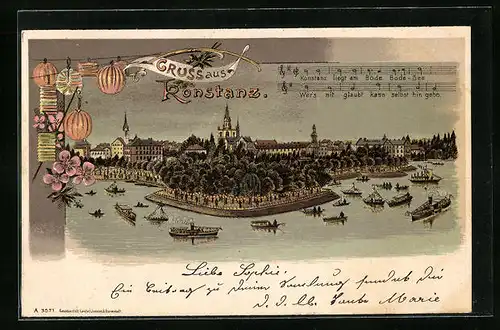 GRUSS aus
Konstanz.
Konstanz liegt am Bode Bode-See
Wer's nit glaubt kann selbst hin gehn.
Liebe Sophie.
Ein Beitrag zu Deiner Sendet Dir
D. D. lb. Marie
A 3571.